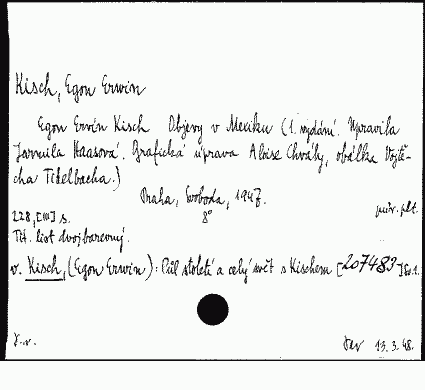 Kisch, Egon Erwin
Egon Ervín Kisch Objevy v Mexiku (1. vydání. Upravila
Jarmila Haasová. Grafická úprava Aloise Chvály, obálka Vojtě-
cha Tittelbacha.)
Praha, Svoboda, 1947.
8°
228, [III] s.
Tit. list dvojbarevný.
v. Kisch, (Egon Erwin): Půl století a celý svět s Kischem [207483] Sv. 1.
13. 3. 48.